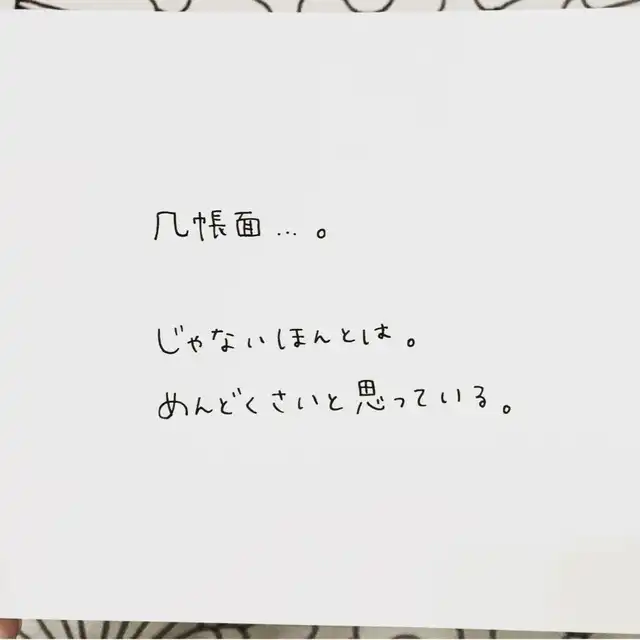 几帳面…。
じゃないほんとは。
めんどくさいと思っている。